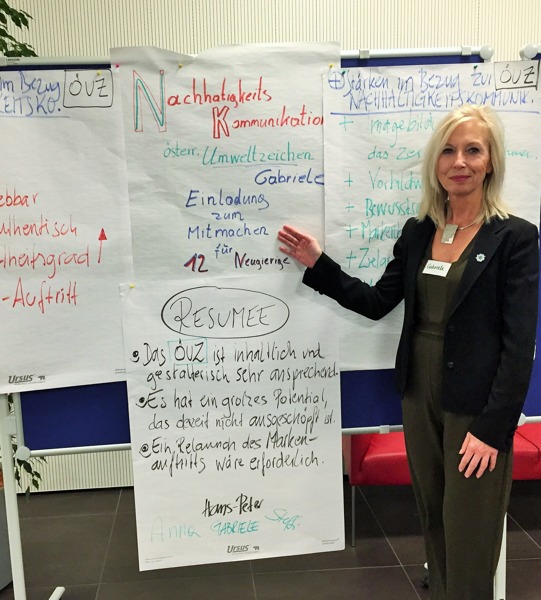 im Bezug
ÖUZ
EITSKO.
ebbar
uthentisch
dheitsgrad
-Auftritt
URSUS
Nachhaltigkeits
Kommunikation
österr. Umweltzeichen
Gabriele
Einladung
zum
Mitmachen
für
12 Neugierige
RESUMEE
Das ÖUZ ist inhaltlich und
gestalterisch sehr ansprechend.
Es hat ein großes Potential,
das derzeit nicht ausgeschöpft ist.
Ein Relaunch des Marken-
auftritts wäre erforderlich.
Hans-Peter
Anna GABRIELE
URSUS
stärken im Bezug zur ÖUZ
NACHHALTIGKEITSKOMMUNIK.
+ Imagebild
das Ze
+ Vorbild
+ Bewusstse
+ Marketin
+ Zielg
Gabriele